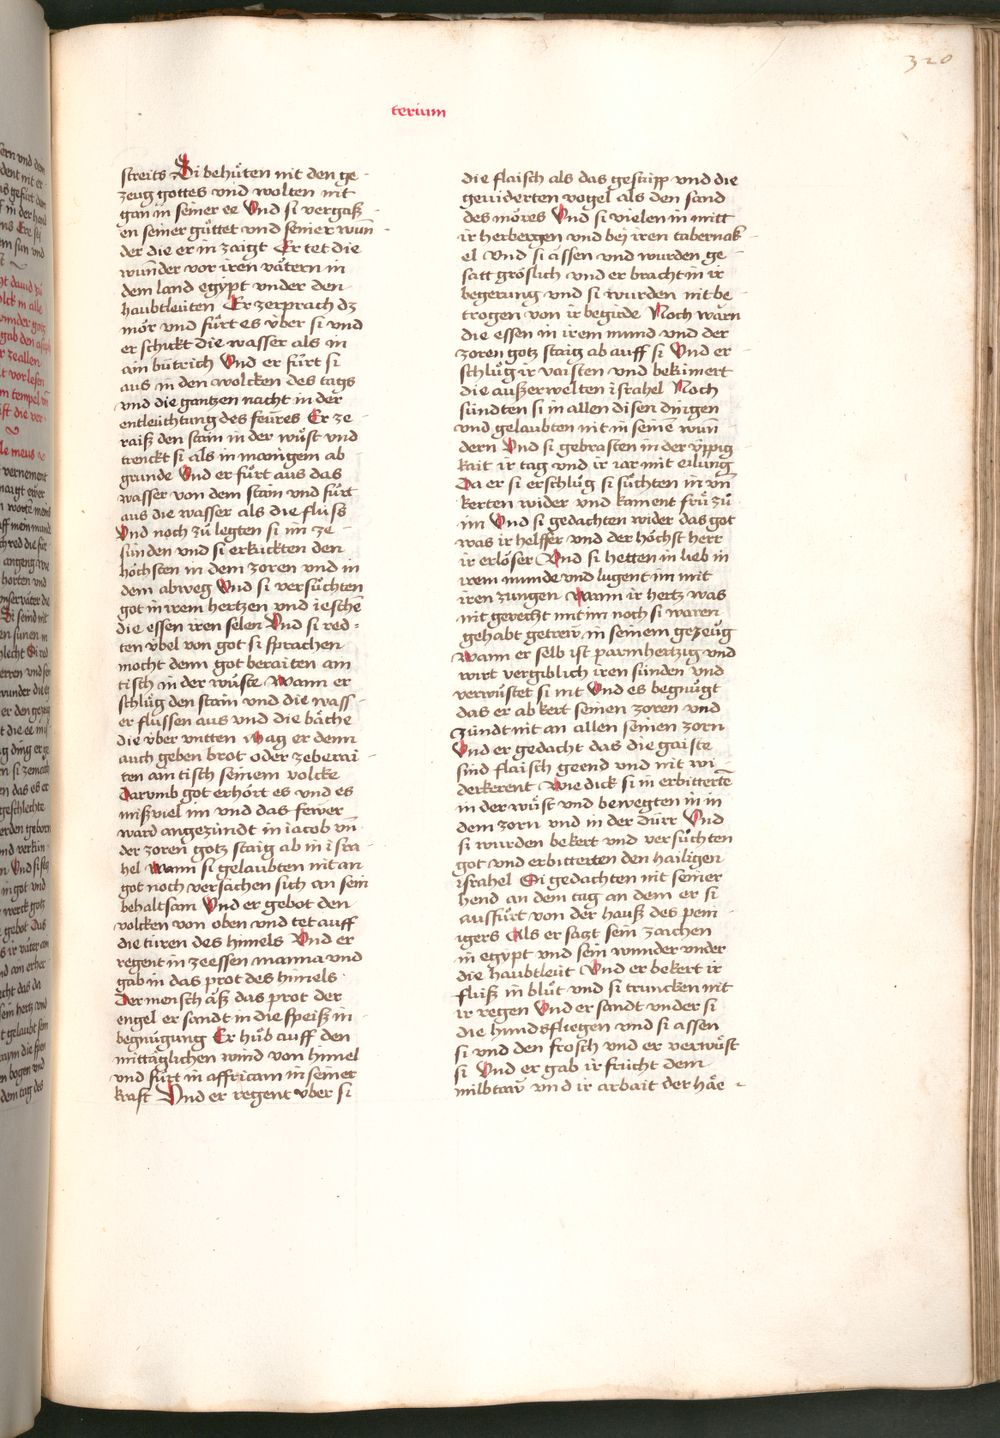 320
terium
streits Si behuͤten nit den ge
zeug gottes vnd wolten nit
gan in seiner ee Vnd si vergaß
en seiner guͤttet vnd seiner wun
der die er in zaigt Er tet die
wunder vor iren vaͤtern in
dem land egypt vnder den
haubtleuͤten Er zerprach dz
moͤr vnd fuͤrt es vͤber si vnd
er schickt die wasser als in
ain buͤtrich Vnd er fuͤrt si
aus in den wolcken des tags
vnd die gantzen nacht in der
entleuͤchtung des feuͤres Er ze
raiß den stain in der wuͤst vnd
trenckt si als in manigem ab
grunde Vnd er fuͤrt aus das
wasser von dem stain vnd fuͤrt
aus die wasser als die fluͤss
Vnd noch zuͦ legten si im ze
suͤnden vnd si erkuckten den
hoͤchsten in dem zoren vnd in
dem abweg Vnd si versuͦchten
got in irem hertzen vnd iesche
die essen iren selen Vnd si red
ten vbel von got si sprachen
mocht denn got beraiten am
tisch in der wuͤste Wann er
schluͦg den stain vnd die wass
er flussen aus vnd die baͤche
die vͤber vntten Mag er denn
auch geben brot oder zeberai
ten am tisch seinem volcke
Darvmb got erhoͤrt es vnd es
mißviel im vnd das fewer
ward angezuͤndt in iacob vn̄
der zoren gotz staig ab in isra
hel Wann si gelaubten nit an
got noch versachen sich an sein
behaltsam Vnd er gebot den
volcken von oben vnd tet auff
die tuͤren des himels Vnd er
regent in zeessen manna vnd
gab in das prot des himels
Der mensch aͤß das prot der
engel er sandt in die speiß in
begnuͤgung Er huͦb auff den
mittaͤglichen wind von himel
vnd fuͤrt in affricam in seiner
kraft Vnd er regent vͤber si
die flaisch als das gestuͤpp vnd die
geuiderten vogel als den sand
des moͤres Vnd si vielen in mitt
ir herbergen vnd bei iren tabernak
el Vnd si assen vnd wurden ge
satt groͤslich vnd er bracht in ir
begerung vnd si wurden nit be
trogen von ir begirde Noch warn
die essen in irem mund vnd der
zoren gotz staig ab auff si Vnd er
schluͦg ir vaisten vnd bekuͤmert
die außerwelten israhel Noch
suͤndten si in allen disen dingen
vnd gelaubten nit in seine wun
dern Vnd si gebrasten in der vͤppig
kait ir tag vnd ir iar mit eilung
Da er si erschluͦg si suͦchten in vn̄
kerten wider vnd kament fruͤ zuͦ
im Vnd si gedachten wider das got
was ir helffer vnd der hoͤchst herr
ir erloͤser Vnd si hetten in lieb in
irem munde vnd lugent im mit
iren zungen Wann ir hertz was
nit gerecht mit im noch si waren
gehabt getrew in seinem gezeuͤg
Wann er selb ist parmhertzig vnd
wirt vergiblich iren suͤnden vnd
verwuͤstet si nit Vnd es begnuͤgt
das er ab kert seinen zoren vnd
zuͤndt nit an allen seinen zorn
Vnd er gedacht das die gaiste
sind flaisch geend vnd nit wi
derkerent Wie dick si in erbitterte
in der wuͤst vnd bewegten in in
dem zorn vnd in der duͤrr Vnd
si wurden bekert vnd versuͦchten
got vnd erbitterten den hailigen
israhel Si gedachten nit seiner
hend an dem tag an dem er si
ausfuͤrt von der hauß des pein
igers Als er satzt sein zaichen
in egypt vnd sein wunder vnder
die haubtleuͤt Vnd er bekert ir
fluͤß in bluͦt vnd si truncken nit
ir regen Vnd er sandt vnder si
die hundsfliegen vnd si assen
si vnd den frosch vnd er verwuͦst
si Vnd er gab ir fruͤcht dem
milbtaw vnd ir arbait der haͤe